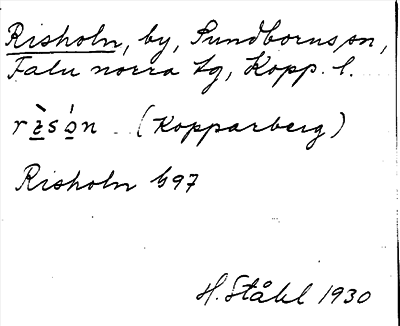 Risholn, by, Sundborns sn,
Falu norra tg, Kopp. l.
(Kopparberg)
Risholn 1/97
H. Ståhl 1930